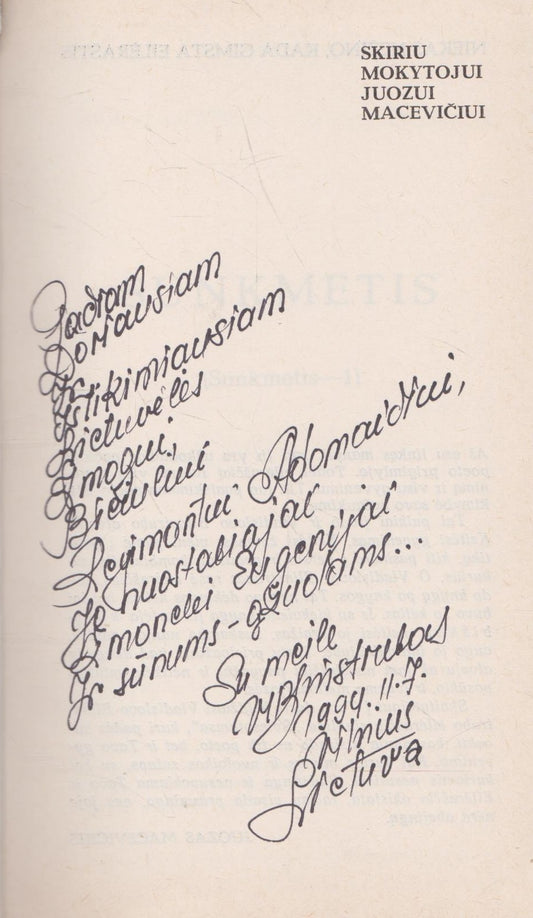 SKIRIU
MOKYTOJUI
JUOZUI
MACEVIČIUI
Pačiam
Doriausiam
Ir
Ištikimiausiam
Lietuvėlės
Žmogui,
Bičiuliui
Regimantui Adomaičiui,
Jo nuostabiajai
Žmonelei Eugenijai
Ir sūnums-ąžuolams...
Su meile
1994.11.7.
Vilnius
Lietuva